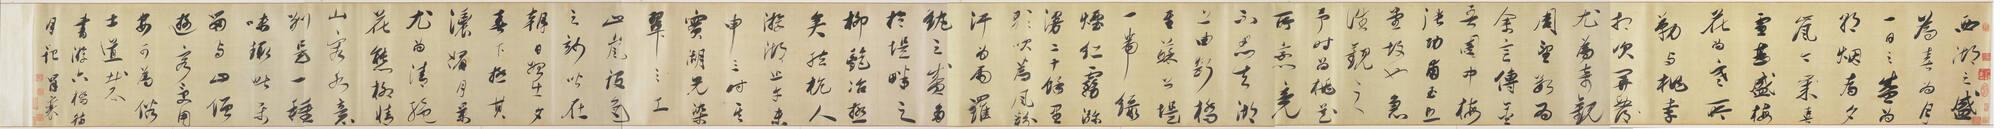 西湖之盛
為春為月
一日之盛為
朝烟為夕
嵐今歲春
雪甚盛梅
花為寒所
勒與桃李
相次開發
尤為奇觀
周望數為
余言傅金
吾園中梅
張功甫玉照
堂故物急
往觀之
予時為桃花
所戀竟
不忍去湖
上由斷橋
至蘇公堤
一帶綠
煙紅霧瀰
漫二十餘里
歌吹為風粉
汗為雨羅
紈之盛多
於堤畔之
柳艷冶極
矣然杭人
遊湖止午未
申三時其
實湖光染
翠之工
山嵐設色
之妙皆在
朝日始出夕
舂未下極其
濃媚月景
尤為清絕
花態柳情
山容水意
別是一種
趣味此樂
留與山僧
遊客受用
安可為俗
士道哉
書遊六橋待
月記